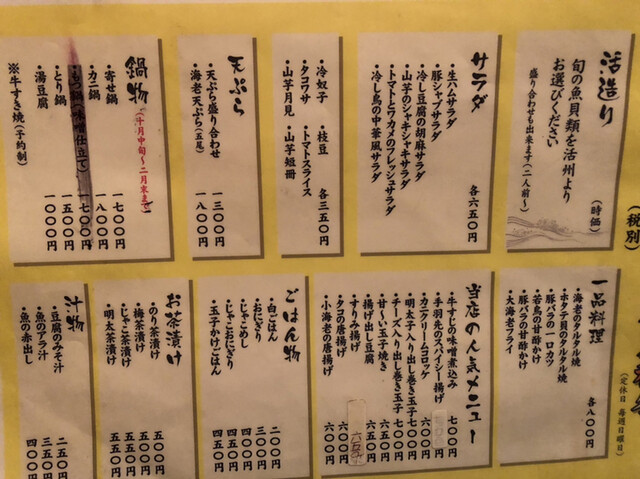 (税別)
活造り
(時価)
旬の魚貝類を活州より
お選びください
盛り合わせも出来ます(二人前〜)
サラダ
各六五〇円
・生ハムサラダ
・豚シャブサラダ
・冷し豆腐の胡麻サラダ
・山芋のシャキシャキサラダ
・トマトとワカメのフレッシュサラダ
・冷し鳥の中華風サラダ
・冷奴子 ・枝豆
・タコワサ ・トマトスライス
・山芋月見 ・山芋短冊
各三五〇円
天ぷら
・天ぷら盛り合わせ 一三〇〇円
・海老天ぷら(五尾) 一八〇〇円
鍋物(十月中旬〜二月末まで)
・寄せ鍋 一七〇〇円
・カニ鍋 一八〇〇円
・もつ鍋(味噌仕立て) 一七〇〇円
・とり鍋 一五〇〇円
・湯豆腐 一〇〇〇円
※牛すき焼(予約制)
(定休日 毎週日曜日)
一品料理
各八〇〇円
・海老のタルタル焼
・ホタテ貝のタルタル焼
・若鳥の甘酢かけ
・豚バラの一口カツ
・豚バラの甘酢かけ
・大海老フライ
当店の人気メニュー
・牛すじの味噌煮込み 七〇〇円
・手羽先のスパイシー揚げ
・カニクリームコロッケ 六五〇円
・明太子入り出し巻き玉子 七〇〇円
・チーズ入り出し巻き玉子 七〇〇円
・甘〜い玉子焼き 六五〇円
・揚げ出し豆腐 六〇〇円
・すりみ揚げ 六五〇
・タコの唐揚げ 六〇〇円
・小海老の唐揚げ 六〇〇円
ごはん物
・白ごはん 二〇〇円
・おにぎり 三〇〇円
・じゃこめし 五五〇円
・じゃこおにぎり 五五〇円
・玉子かけごはん 四〇〇円
お茶漬け
・のり茶漬け 五〇〇円
・梅茶漬け 五五〇円
・じゃこ茶漬け 五五〇円
・明太茶漬け 五五〇円
汁物
・豆腐のみそ汁 二五〇円
・魚のアラ汁 三五〇円
・魚の赤出し 四〇〇円